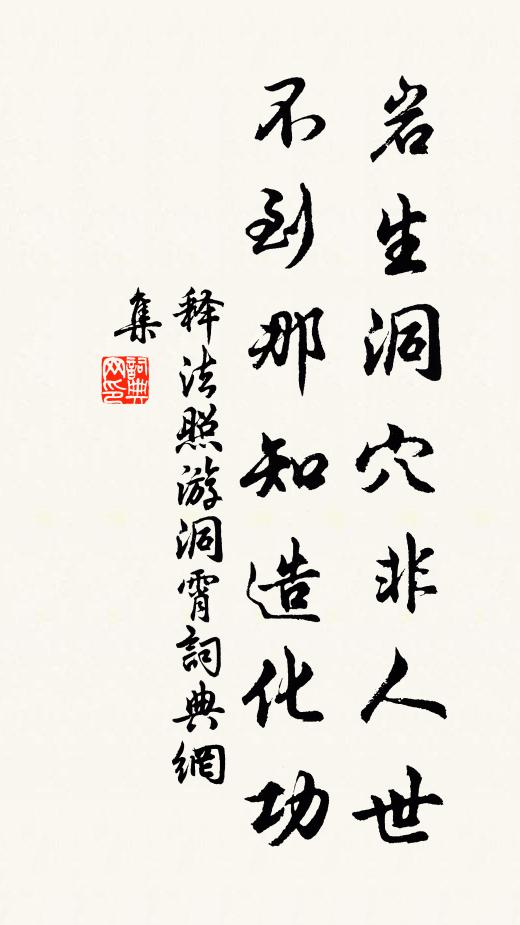 岩生洞穴非人世
不到那知造化功
释法照游洞霄詞典網
集
詞典
网印